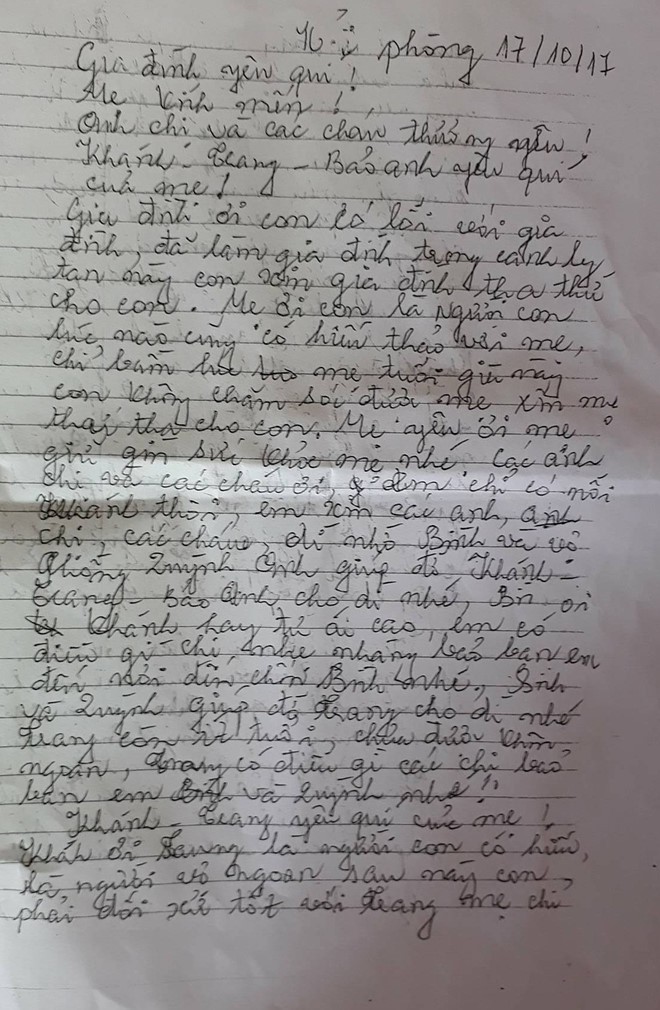 Hải phòng 17/10/17
Gia đình yêu quí!
Mẹ kính mến!
Anh chị và các cháu thương yêu!
Khánh - Trang - Bảo anh yêu quí
của mẹ!
Gia đình ơi con có lỗi với gia
đình, đã làm gia đình trong cảnh ly
tan này con xin gia đình tha thứ
cho con. Mẹ ơi con là người con
lúc nào cũng có hiếu thảo với mẹ,
chỉ mẹ tuổi già này
con không chăm sóc được mẹ xin mẹ
tha cho con. Mẹ yêu ơi mẹ
giữ gìn sức khỏe mẹ nhé. Các anh
chị và các cháu ơi, em chỉ có mỗi
Khánh thôi, em xin các anh,
chị, các cháu, dì nhờ Bình và vợ
chồng Quỳnh Anh giúp đỡ Khánh -
Trang - Bảo Anh cho dì nhé, Bn ơi
Khánh hay tự ái cao, em có
điều gì chị nhẹ nhàng bảo ban em
đến nơi đến chốn Bình nhé, Bình
và Quỳnh giúp đỡ Trang cho dì nhé
Trang còn ít tuổi, chưa được khôn
ngoan, Trang có điều gì các chị bảo
ban em Bình và Quỳnh nhé!
Khánh - Trang yêu quí của mẹ!
Khánh ơi Trang là người con có hiếu,
là người vợ ngoan sau này con
phải đối xử tốt với Trang mẹ chỉ